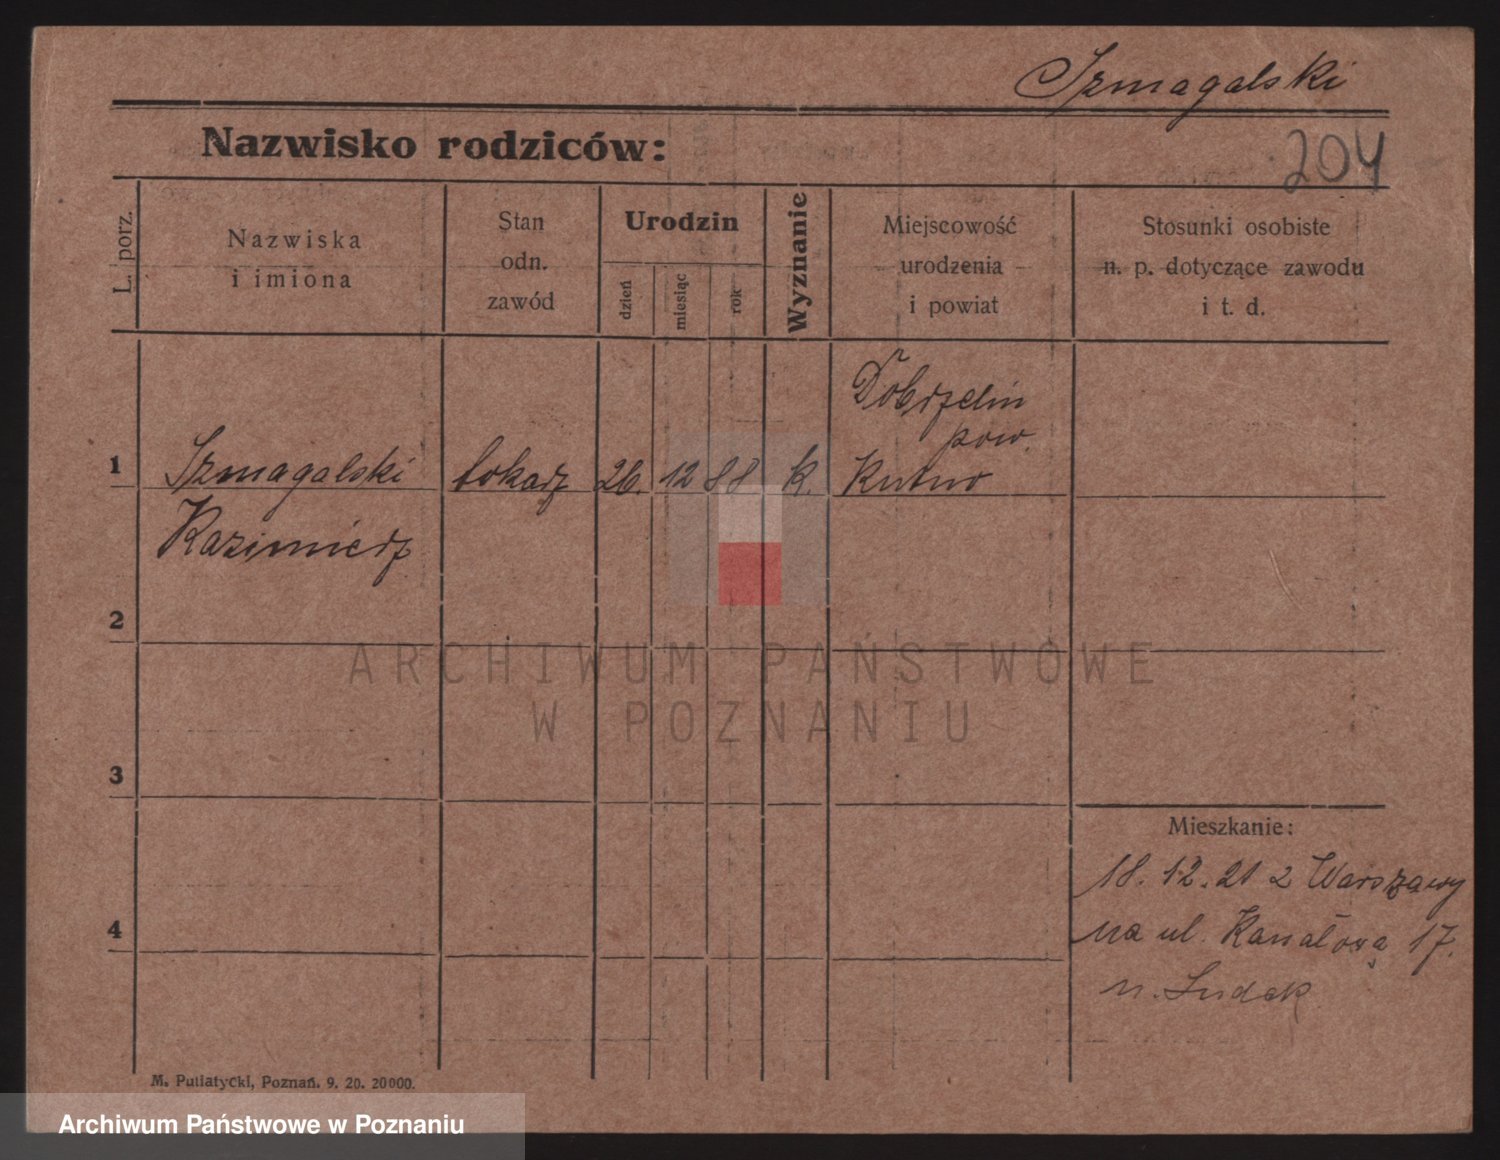 Szmagalski
Nazwisko rodziców:
204
L. porz.
Nazwiska
i imiona
Stan
odn.
zawód
Urodzin
dzień
miesiąc
rok
Wyznanie
Miejscowość
urodzenia
i powiat
Stosunki osobiste
n. p. dotyczące zawodu
i t. d.
Dobrzelin
pow.
1 Szmagalski tokarz 26. 12 88 k. Kutno
Kazimierz
2
ARCHIWUM PAŃSTWOWE
W POZNANIU
3
Mieszkanie:
18. 12. 21 z Warszawy
4
na ul. Kanałową 17.
M. Putiatycki, Poznań. 9. 20. 20000.
Archiwum Państwowe w Poznaniu